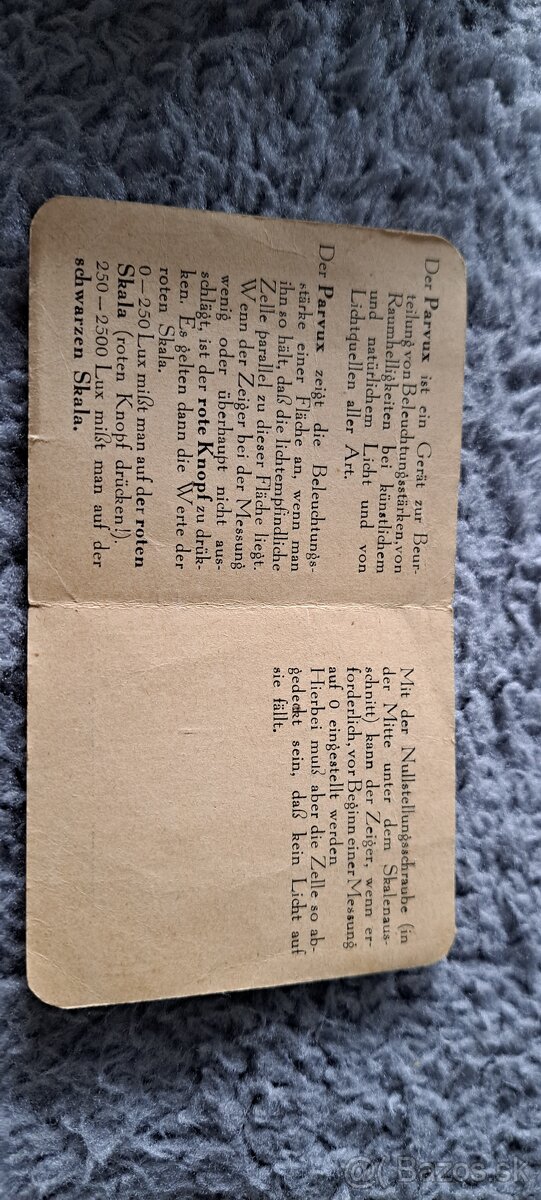 Der Parvux ist ein Gerät zur Beur-
teilung von Beleuchtungsstärken, von
Raumhelligkeiten bei künstlichem
und natürlichem Licht und von
Lichtquellen aller Art.
Der Parvux zeigt die Beleuchtungs-
stärke einer Fläche an, wenn man
ihn so hält, daß die lichtempfindliche
Zelle parallel zu dieser Fläche liegt.
Wenn der Zeiger bei der Messung
wenig oder überhaupt nicht aus-
schlägt, ist der rote Knopf zu drük-
ken. Es gelten dann die Werte der
roten Skala.
0—250 Lux mißt man auf der roten
Skala (roten Knopf drücken!),
250—2500 Lux mißt man auf der
schwarzen Skala.
Mit der Nullstellungsschraube (in
der Mitte unter dem Skalenaus-
schnitt) kann der Zeiger, wenn er-
forderlich, vor Beginn einer Messung
auf 0 eingestellt werden
Hierbei muß aber die Zelle so ab-
gedeckt sein, daß kein Licht auf
sie fällt.
Bazos.sk